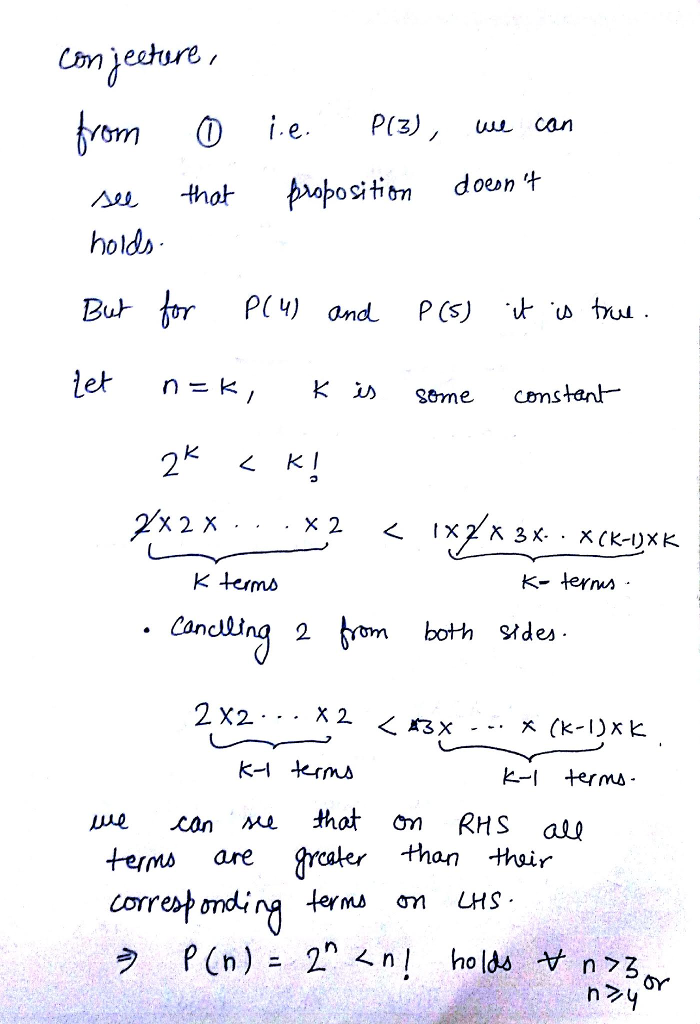 conjecture,
from ① i.e. P(3), we can
see that proposition doesn't
holds.
But for P(4) and P(5) it is true.
Let n = K, K is some constant
2^K < K!
2 × 2 × . . . × 2 < 1 × 2 × 3 × . . × (K-1) × K
K terms K- terms.
• Canclling 2 from both sides.
2 × 2 . . . × 2 < 3 × - - - × (K-1) × K.
K-1 terms K-1 terms.
we can see that on RHS all
terms are greater than their
corresponding terms on LHS.
⇒ P(n) = 2^n < n! holds ∀ n > 3 or
n ⩾ 4